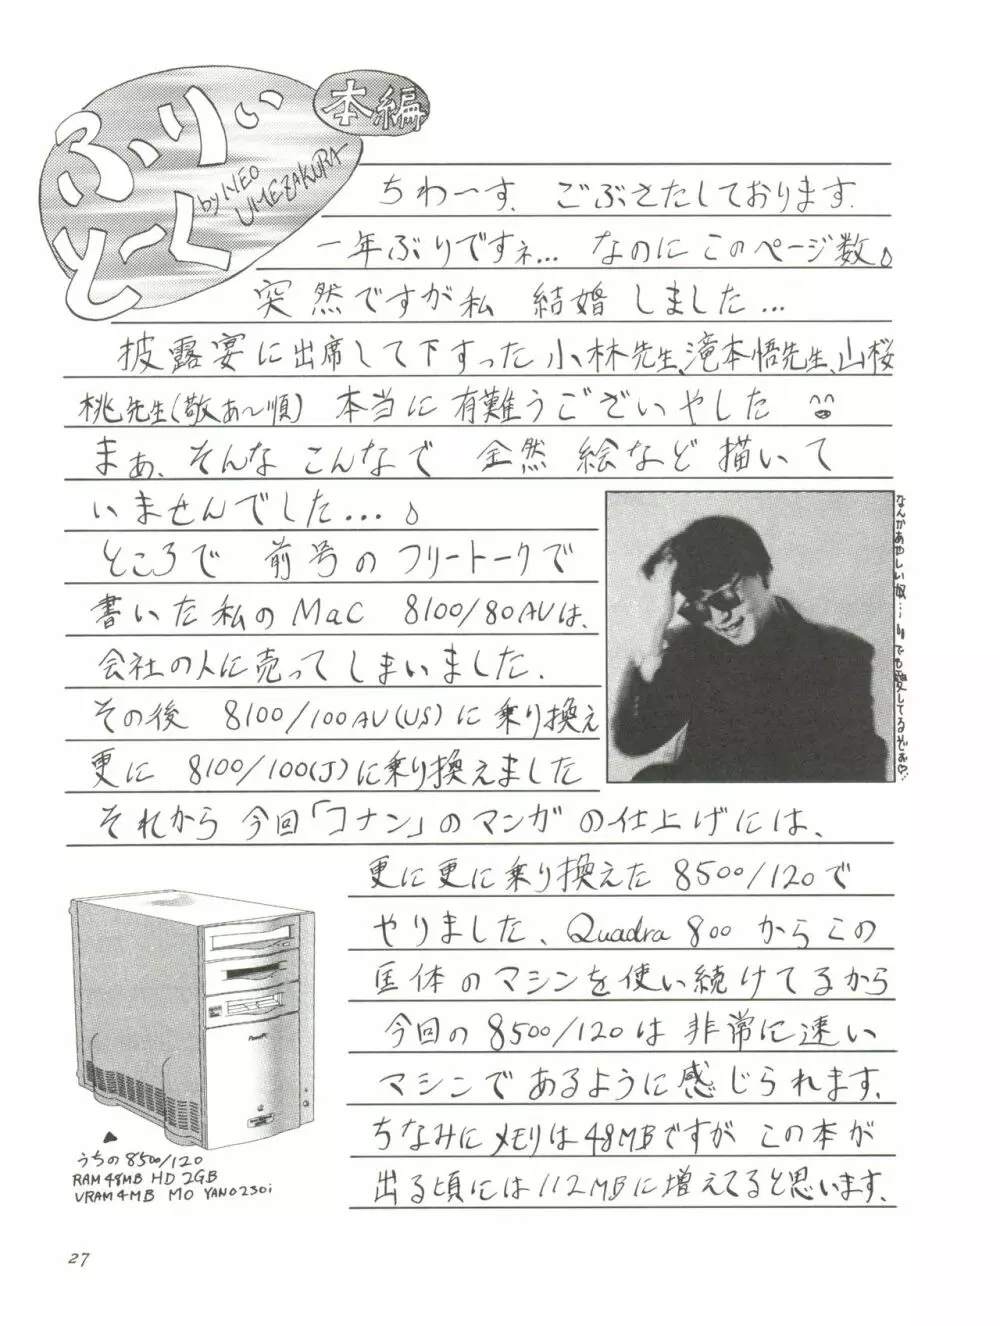 ふりぃ
とーく
本編
by NEO
UMEZAKURA
ちわーす. ごぶさたしております.
一年ぶりですネ... なのに このページ数♪
突然ですが私 結婚 しました...
披露宴に出席して下すった 小林先生、滝本悟先生、山桜
桃先生(敬あ〜順) 本当に 有難うございやした
まぁ、そんな こんなで 全然 絵など 描いて
いませんでした...♪
ところで 前号の フリートークで
書いた私の Mac 8100/80AVは、
会社の人に売って しまいました.
その後 8100/100AV(US)に乗り換え
更に 8100/100(J)に乗り換えました
それから 今回「コナン」のマンガ の仕上げには、
更に更に乗り換えた 8500/120で
やりました、Quadra 800 からこの
匡体のマシンを使い続けてるから
今回の 8500/120は 非常に速い
マシンで あるように感じられます.
ちなみに メモリは48MBですが この本が
出る頃には 112MBに増えてると思います.
なんかあやしい奴... でも愛してるぞぉ♡
PowerPC
▲
うちの8500/120
RAM48MB HD 2GB
VRAM4MB MO YANO230i
27